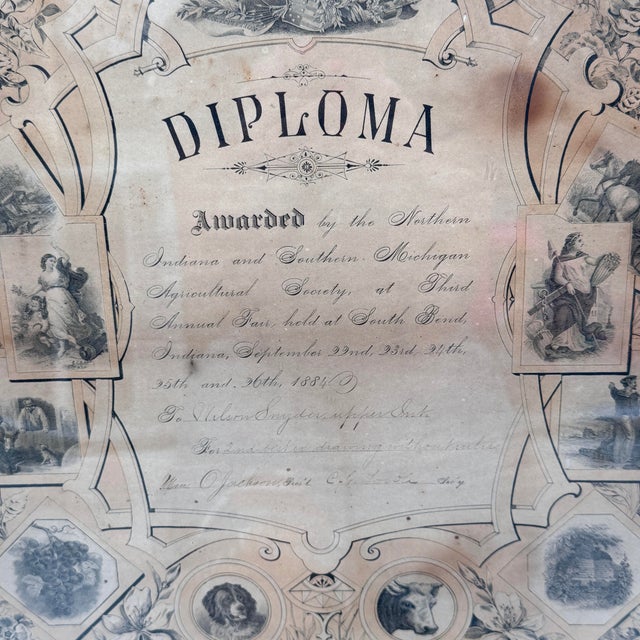 DIPLOMA
Awarded by the Northern
Indiana and Southern Michigan
Agricultural Society, at Third
Annual Fair, held at South Bend,
Indiana, September 22nd, 23rd, 24th,
25th and 26th, 1884
To Wilson Snyder upper
For
Wm O Jackson, Pres't C. G.